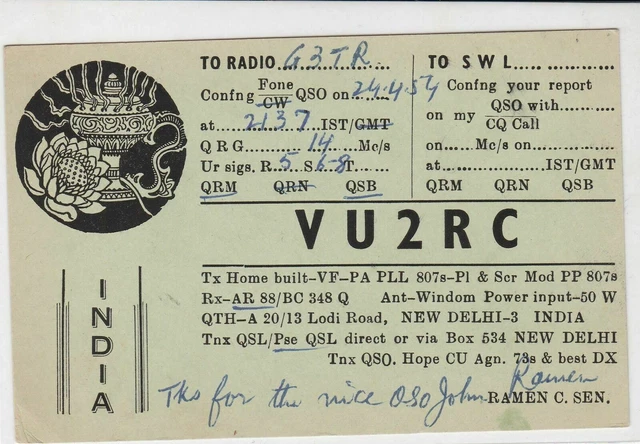 TO RADIO G3TR
Confng Fone/CW QSO on 24.4.54
at 2137 IST/GMT
QRG 14 Mc/s
Ur sigs. R 5 S 6-8 T
QRM QRN QSB
TO SWL
Confng your report
on my QSO with
CQ Call
on Mc/s on
at IST/GMT
QRM QRN QSB
VU2RC
INDIA
Tx Home built-VF-PA PLL 807s-Pl & Scr Mod PP 807s
Rx-AR 88/BC 348 Q Ant-Windom Power input-50 W
QTH-A 20/13 Lodi Road, NEW DELHI-3 INDIA
Tnx QSL/Pse QSL direct or via Box 534 NEW DELHI
Tnx QSO. Hope CU Agn. 73s & best DX
Tks for the nice QSO John Ramen
RAMEN C. SEN.